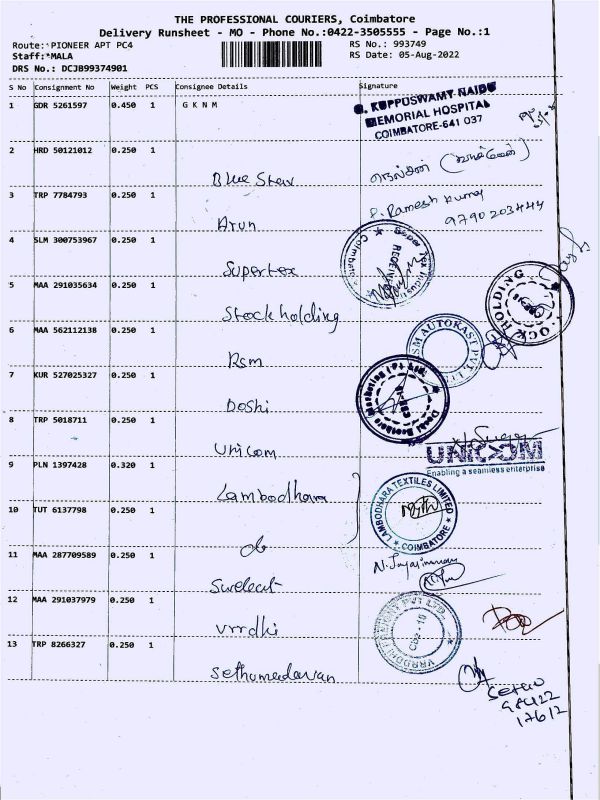 THE PROFESSIONAL COURIERS, Coimbatore
Delivery Runsheet - MO - Phone No.:0422-3505555 - Page No.:1
Route:*PIONEER APT PC4 RS No.: 993749
Staff:*MALA RS Date: 05-Aug-2022
DRS No.: DCJB99374901
S No Consignment No Weight PCS Consignee Details Signature
1 GDR 5261597 0.450 1 G K N M
G. KUPPUSWAMY NAIDU
MEMORIAL HOSPITAL
COIMBATORE-641 037
2 HRD 50121012 0.250 1
Blue Star
3 TRP 7784793 0.250 1
P. Ramesh Kumar
9790203444
Arun
4 SLM 300753967 0.250 1
Supertex
RECEIVED
5 MAA 291035634 0.250 1
Stockholding
STOCK HOLDING
6 MAA 562112138 0.250 1
Rsm
RSM AUTOKAST PVT. LTD.
7 KUR 527025327 0.250 1
Doshi
8 TRP 5018711 0.250 1
Unicom
UNICOM
Enabling a seamless enterprise
9 PLN 1397428 0.320 1
Lambodhara
LAMBODHARA TEXTILES LIMITED
COIMBATORE
10 TUT 6137798 0.250 1
do
11 MAA 287709589 0.250 1
Swelect
12 MAA 291037979 0.250 1
vrrdhi
13 TRP 8266327 0.250 1
Sethumadavan
Sethu
98422
17612